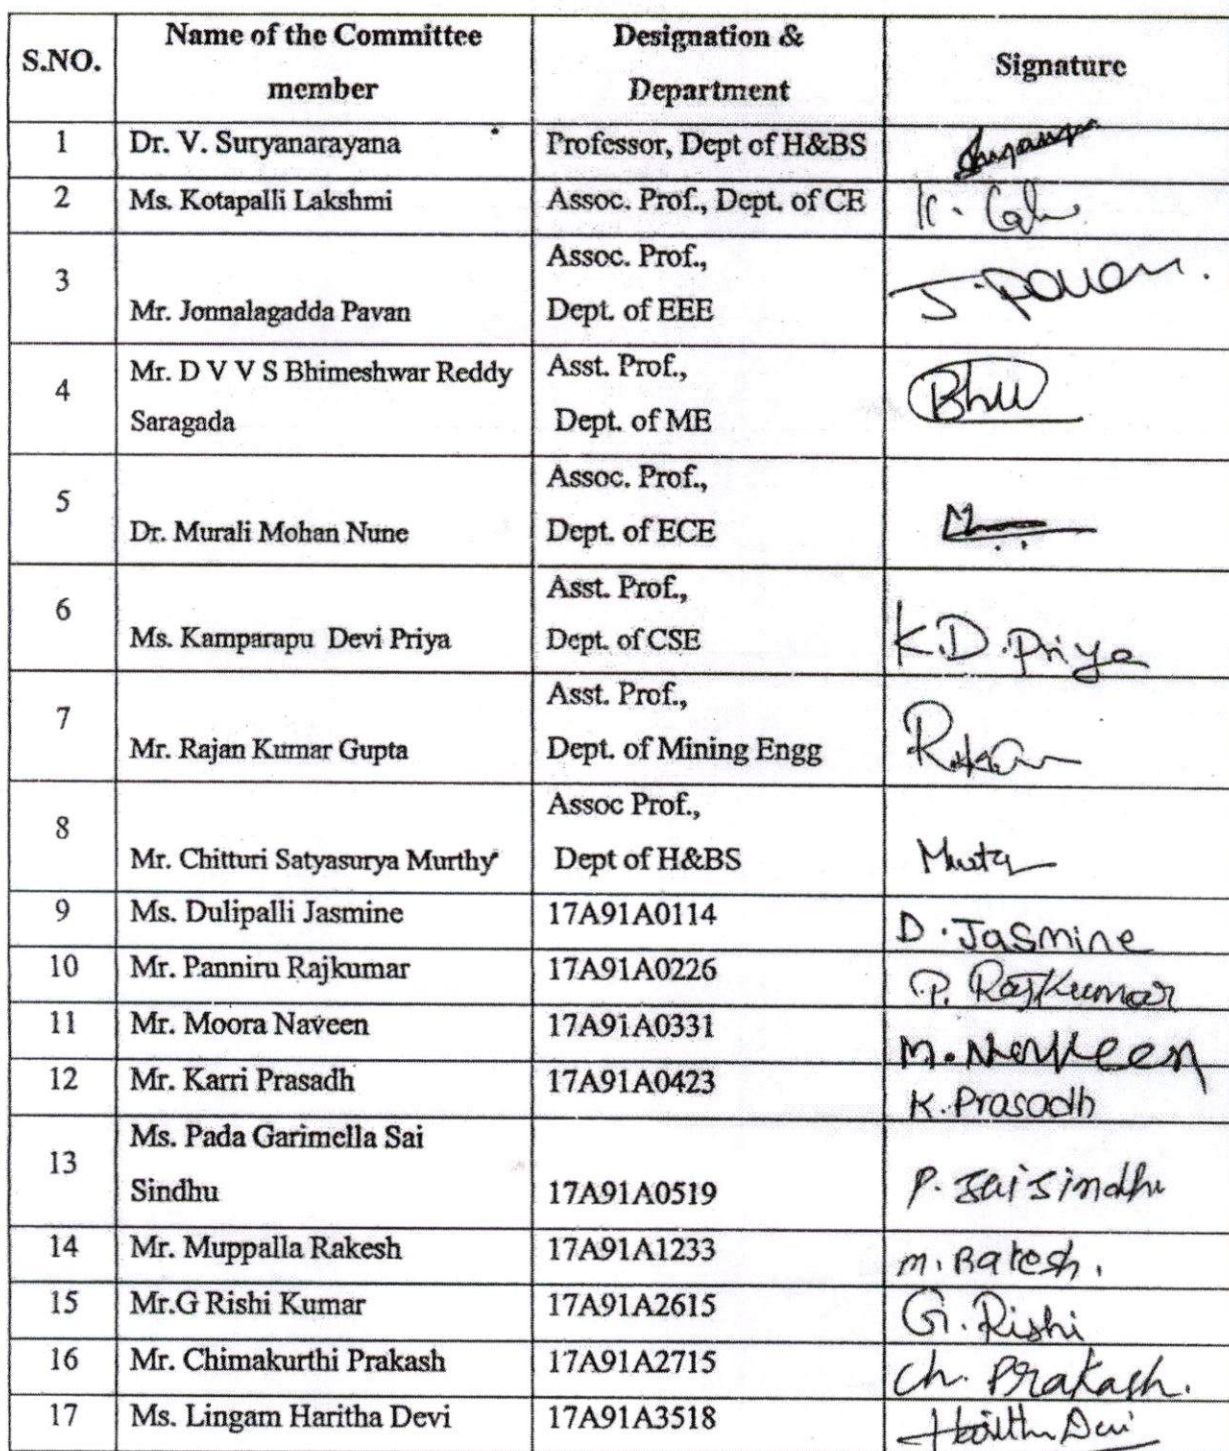 S.NO. Name of the Committee member Designation & Department Signature
1 Dr. V. Suryanarayana Professor, Dept of H&BS
2 Ms. Kotapalli Lakshmi Assoc. Prof., Dept. of CE
3 Mr. Jonnalagadda Pavan Assoc. Prof., Dept. of EEE J. Pavan.
4 Mr. D V V S Bhimeshwar Reddy Saragada Asst. Prof., Dept. of ME
5 Dr. Murali Mohan Nune Assoc. Prof., Dept. of ECE
6 Ms. Kamparapu Devi Priya Asst. Prof., Dept. of CSE K.D.Priya
7 Mr. Rajan Kumar Gupta Asst. Prof., Dept. of Mining Engg
8 Mr. Chitturi Satyasurya Murthy Assoc Prof., Dept of H&BS
9 Ms. Dulipalli Jasmine 17A91A0114 D. Jasmine
10 Mr. Panniru Rajkumar 17A91A0226 P. RajKumar
11 Mr. Moora Naveen 17A91A0331 M. Naveen
12 Mr. Karri Prasadh 17A91A0423 K. Prasadh
13 Ms. Pada Garimella Sai Sindhu 17A91A0519 P. Sai Sindhu
14 Mr. Muppalla Rakesh 17A91A1233 M. Rakesh.
15 Mr.G Rishi Kumar 17A91A2615 G. Rishi
16 Mr. Chimakurthi Prakash 17A91A2715 Ch. Prakash.
17 Ms. Lingam Haritha Devi 17A91A3518 Haritha Devi